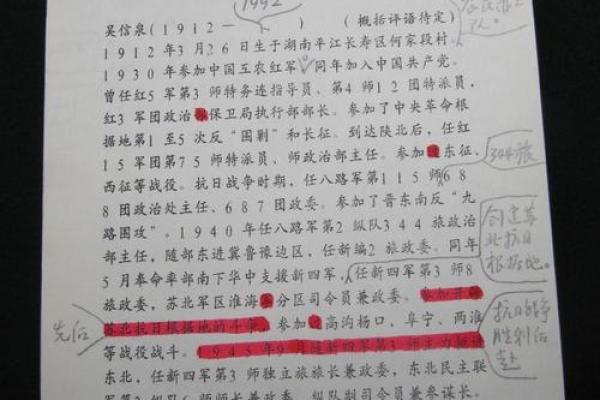 1992
吴信泉(1912—　　)　　(概括评语待定)
1912年3月26日生于湖南平江长寿区何家段村。
1930年参加中国工农红军,同年加入中国共产党。
曾任红5军第3师特务连指导员、第4师12团特派员,
红3军团政治保卫局执行部部长。参加了中央革命根
据地第1至5次反“国剿”和长征。到达陕北后,任红
15军团第75师特派员,师政治部主任。参加东征,
西征等战役。抗日战争时期,任八路军第115师68
8团政治处主任、687团政委。参加了晋东南反“九
路围攻”。1940年任八路军第2纵队344旅政治
部主任,随部东进冀鲁豫边区,任新编2旅政委。同年
5月奉命率部南下华中支援新四军,任新四军第3师8
旅政委,苏北军区淮海分区司令员兼政委。参加开辟
苏北抗日根据地的斗争,参加高沟杨口,阜宁、两淮
等战役战斗。1945年9月随新四军第3师主力挺进
东北,任新四军第3师独立旅旅长兼政委,东北民主联
军第2纵队6师师长兼政委、纵队副司令员兼参谋长。
344旅
创建苏
北抗日
根据地。
先后
抗日战争
胜利后
赴